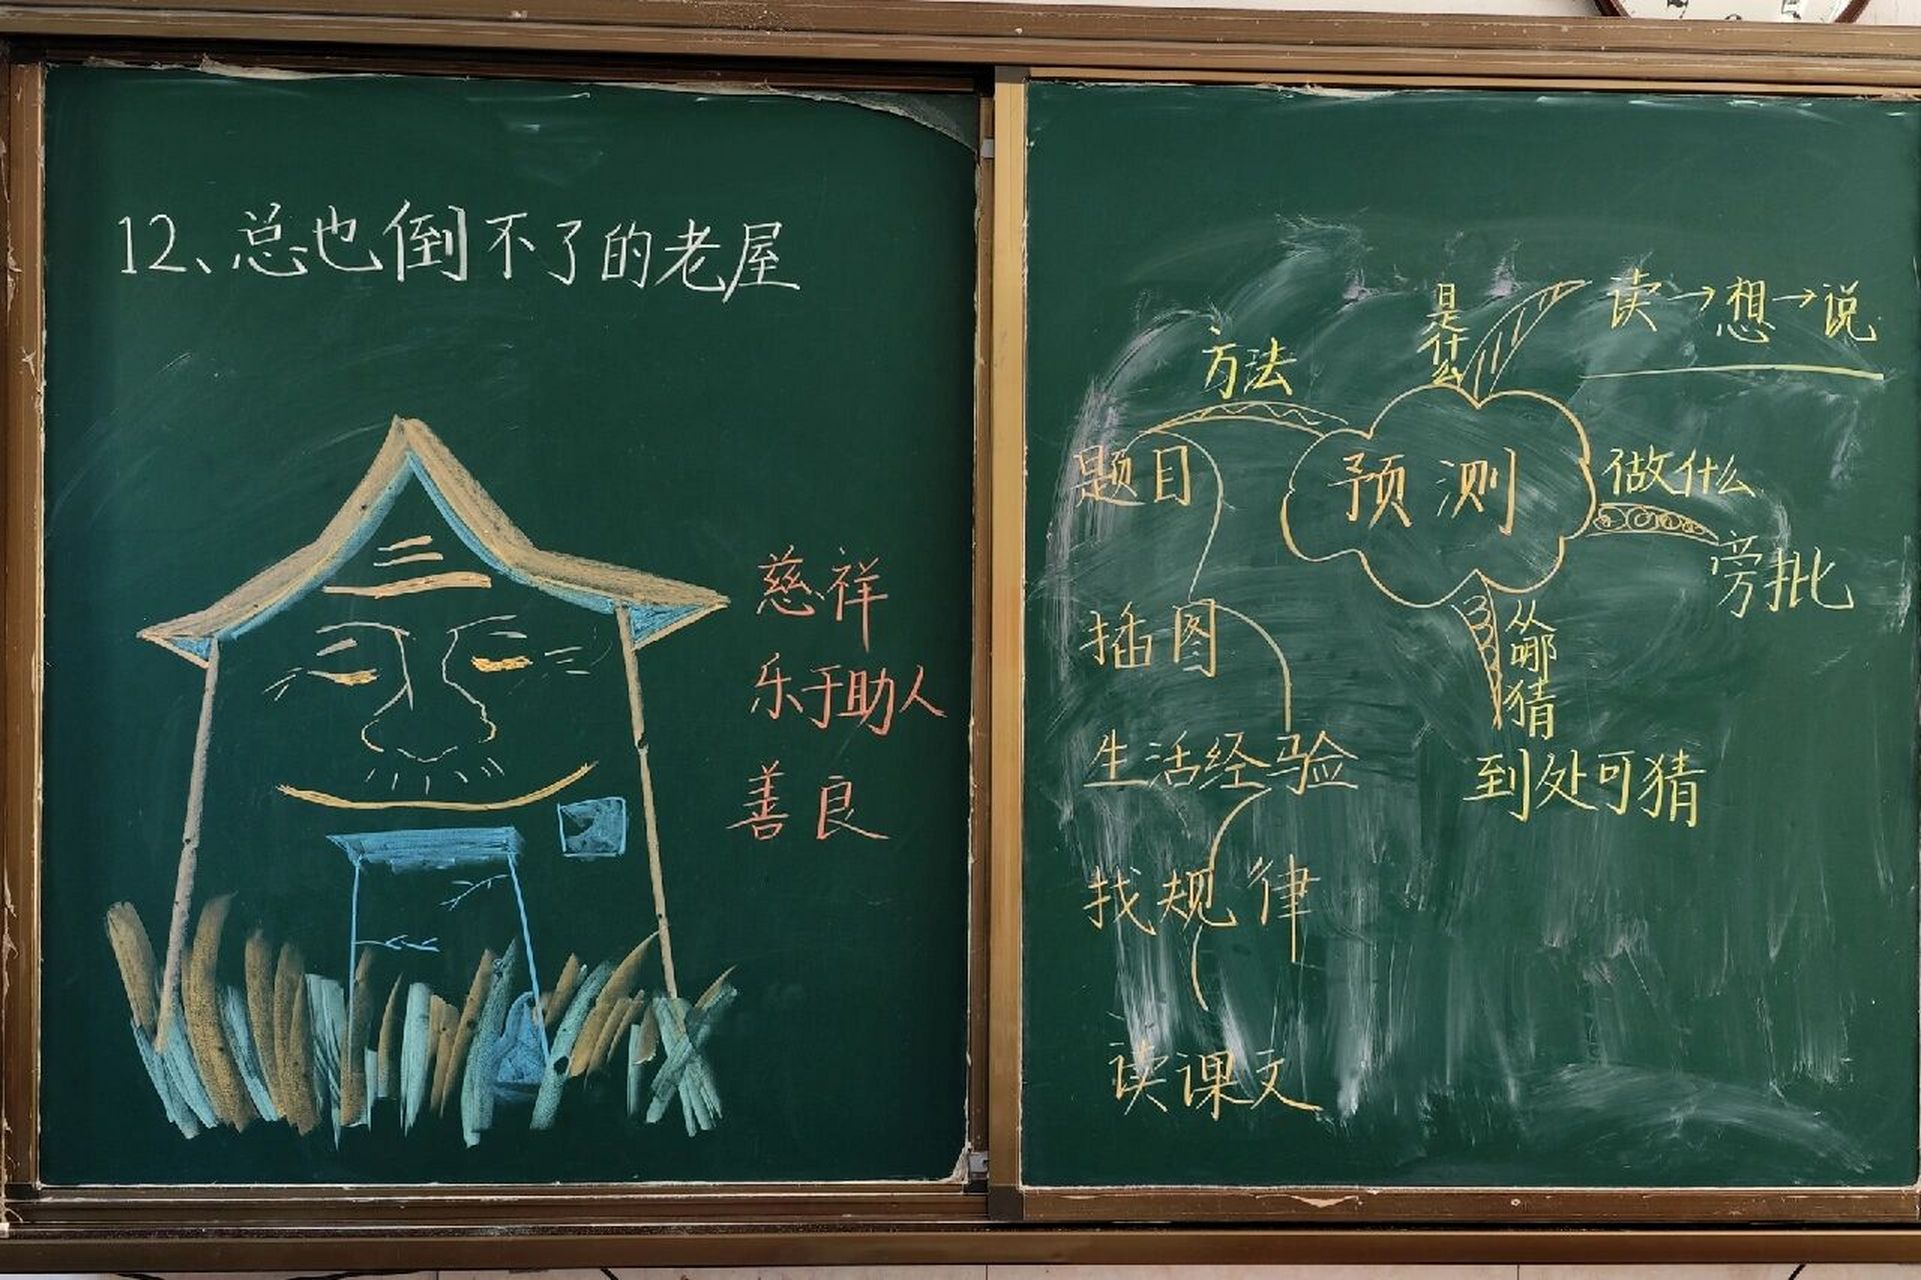 12、总也倒不了的老屋
慈祥
乐于助人
善良
是什么
读→想→说
方法
预测
做什么
旁批
题目
插图
从哪猜
到处可猜
生活经验
找规律
读课文